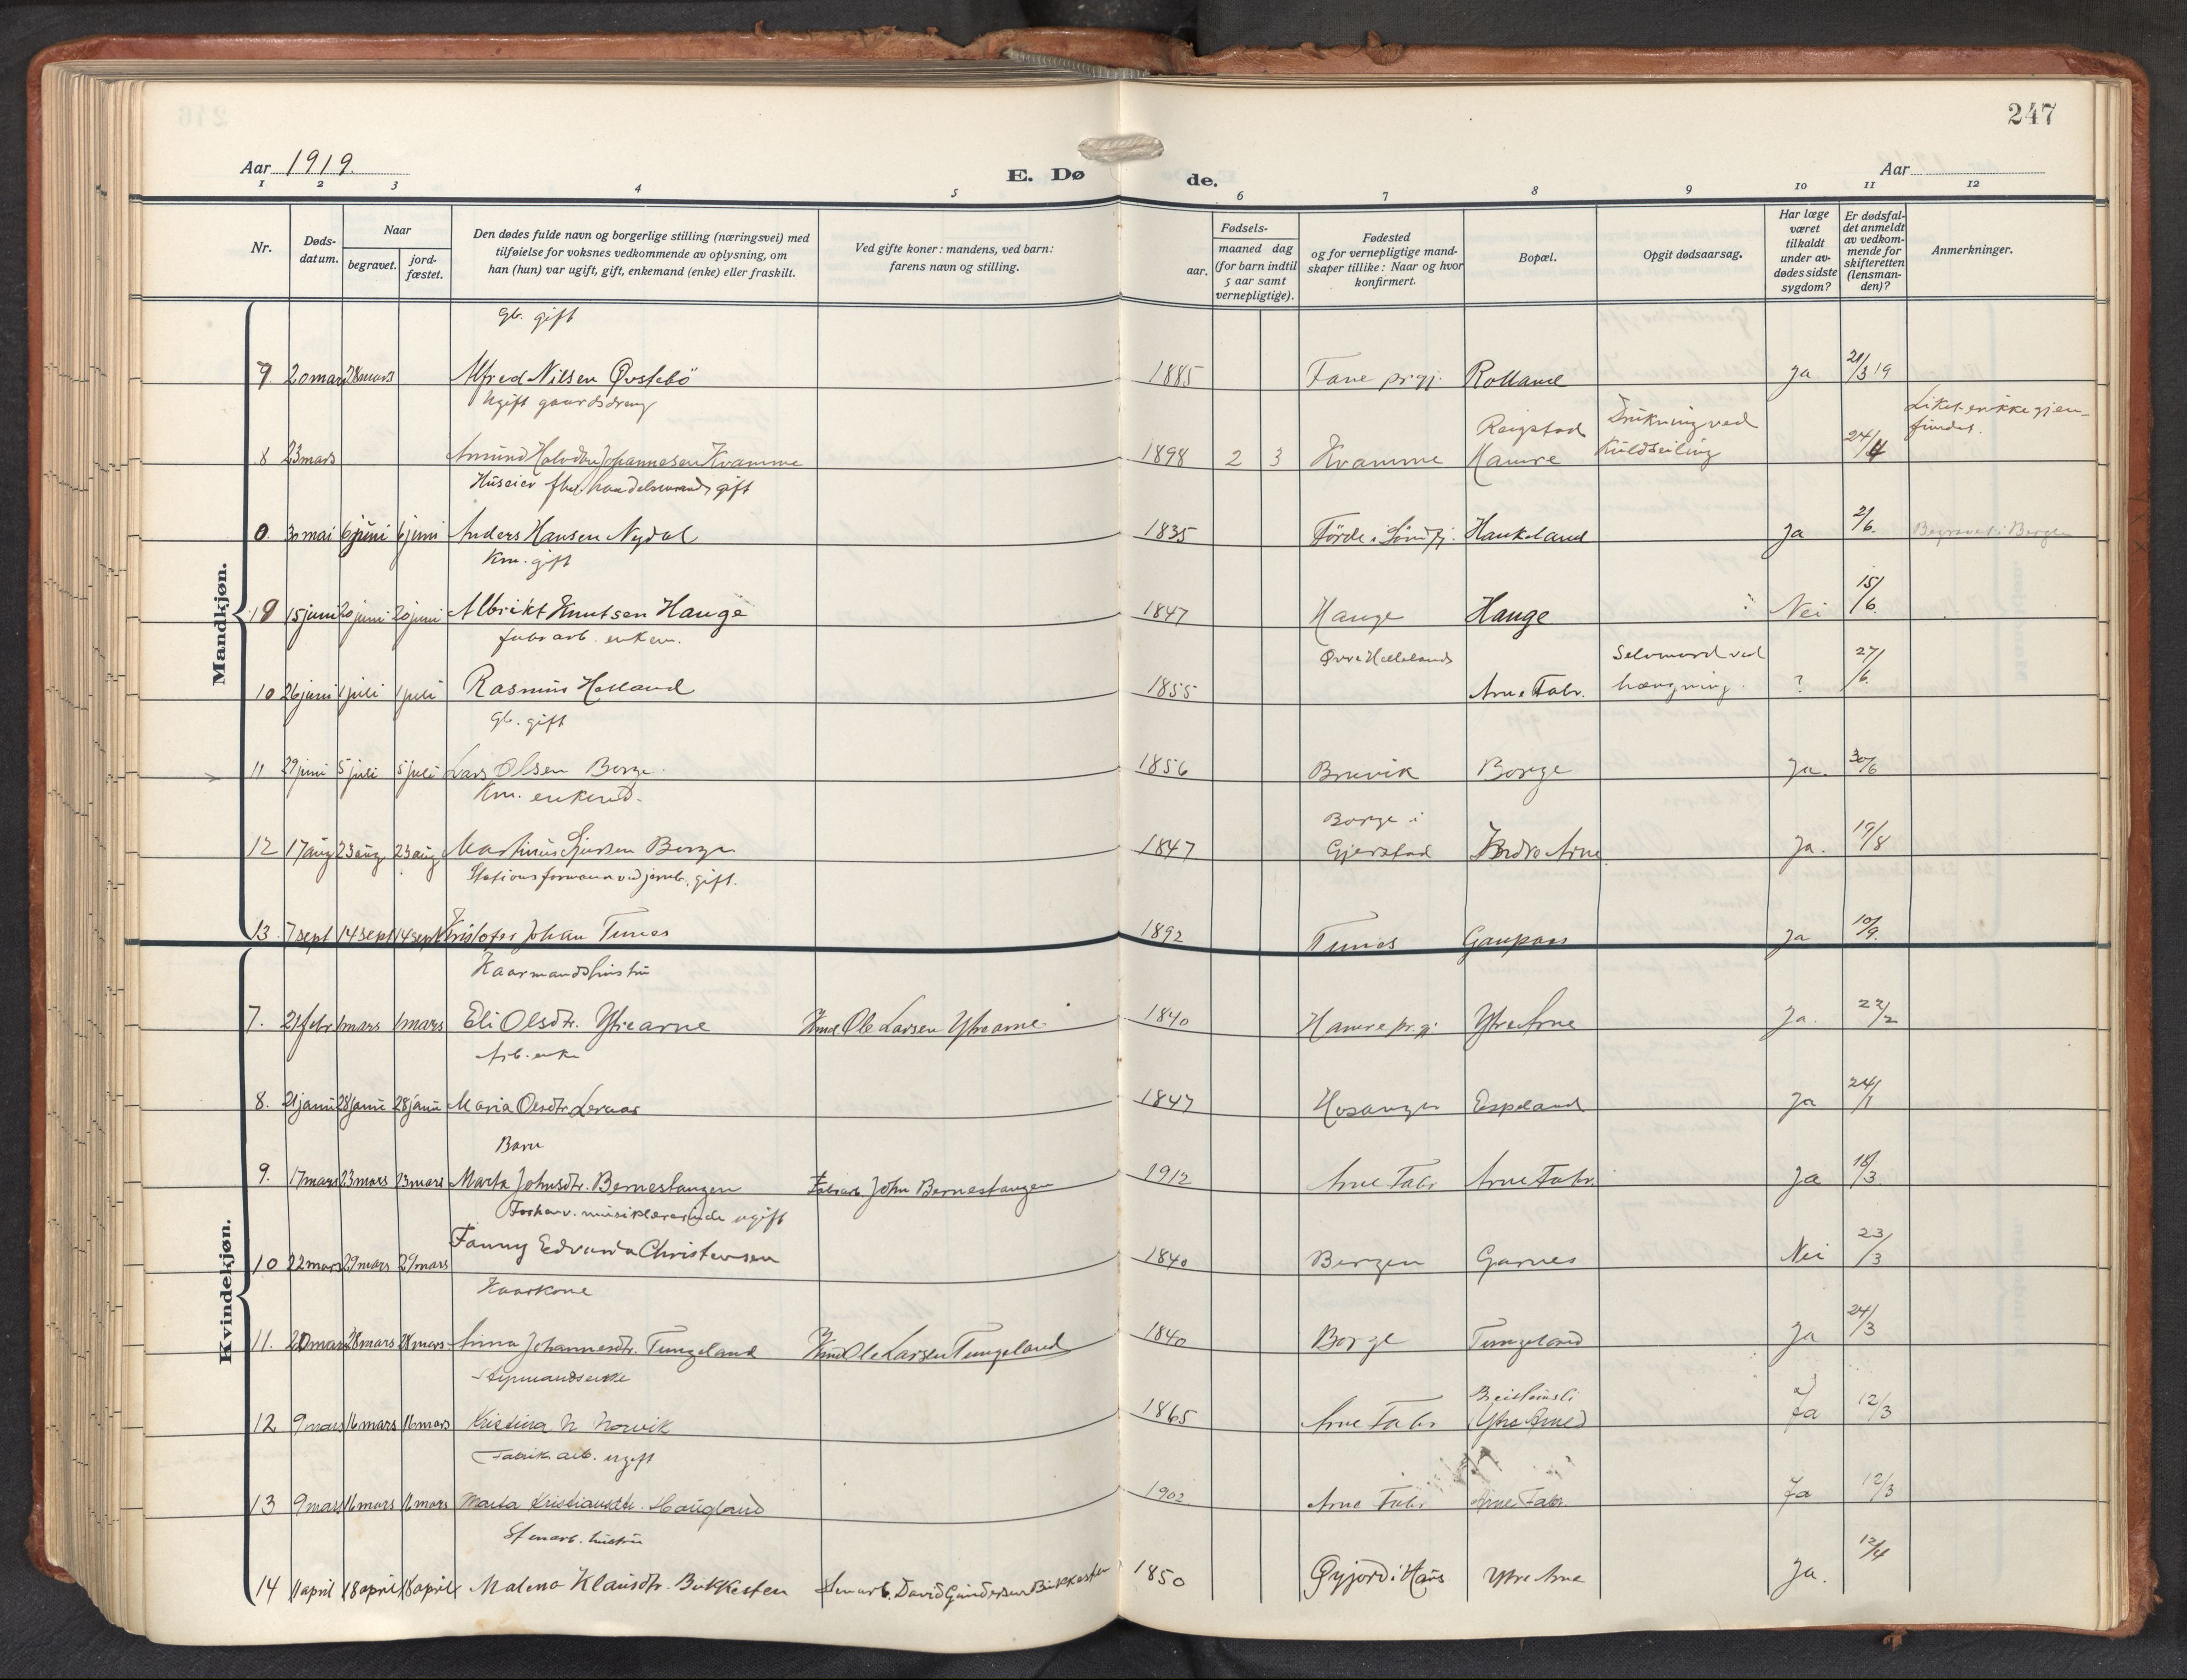 247
Aar 1919.
E. Dø de.
Aar
1 2 3 4 5 6 7 8 9 10 11 12
Nr.
Døds-
datum.
Naar
begravet.
jord-
fæstet.
Den dødes fulde navn og borgerlige stilling (næringsvei) med
tilføielse for voksnes vedkommende av oplysning, om
han (hun) var ugift, gift, enkemand (enke) eller fraskilt.
Ved gifte koner: mandens, ved barn:
farens navn og stilling.
aar.
Fødsels-
maaned dag
(for barn indtil
5 aar samt
vernepligtige).
Fødested
og for vernepligtige mand-
skaper tillike: Naar og hvor
konfirmert.
Bopæl.
Opgit dødsaarsag.
Har læge
været
tilkaldt
under av-
dødes sidste
sygdom?
Er dødsfal-
det anmeldt
av vedkom-
mende for
skifteretten
(lensman-
den)?
Anmerkninger.
Mandkjøn.
gb. gift
7. 20 mars 28 mars Alfred Nilsen Øvstebö 1885 Fane prgj. Rolland Ja 21/3 19
Ugift gaardsdreng
Reigstad Drukning ved Liket er ikke gjen-
8 23 mars Johannesen Kvamme 1898 2 3 Kvamme Hamre Kuldseiling 24/4 fundet.
Huseier fhv. handelsmand, gift
30 mai 6 juni 6 juni Anders Hansen Nydal 1835 Förde i Søndfj. Haukeland Ja 2/6. Begravet i Bergen
Km. gift
9 15 juni 20 juni 20 juni Albrikt Knutsen Hauge 1847 Hauge Hauge Nei 15/6.
fabr arb. enkem.
Selvmord ved
10 26 juni 1 juli 1 juli Rasmus Helland 1855 Arne Fabr. hængning. ? 27/6.
gb. gift
11 29 juni 5 juli 5 juli Lars Olsen Borge. 1856 Bruvik Borge Ja. 30/6
Km. enkemd.
Borge i
12 17 aug 23 aug 23 aug Martinus Borge 1847 Gjerstad Indre Arne Ja. 19/8
Stations formann ved jernb. gift.
13 7 sept 14 sept 14 sept Kristofer Johan Tunes 1892 Tunes Gaupaas Ja 10/9.
Kvindekjøn.
Kaarmandshustru
7. 21 febr 1 mars 1 mars Eli Olsdtr. Ytre arne Kmd Ole Larsen Ytre arne. 1840 Hamre pr.gj. Ytre Arne Ja. 22/2
Arb. enke
8. 21 janu 28 janu 28 janu Maria Olsdtr. 1847 Hosanger Espeland Ja 24/1
Barn
9. 17 mars 23 mars 23 mars Marta Johnsdtr. Bernestangen Fabrarb. John Bernestangen 1912 Arne Fabr Arne Fabr. Ja 18/3.
Forhenv. musiklærerinde ugift
10 22 mars 29 mars 29 mars Fanny Edvarda Christensen 1840 Bergen Garnes Nei 23/3
Kaarkone
11. 20 mars 28 mars 28 mars Anna Johannesdtr. Tungeland Kmd Ole Larsen Tungeland 1840 Borge Tungeland Ja 24/3
Stipmandsenke
12 9 mars 16 mars 16 mars Kristina N Norvik 1865 Arne Fabr (Ytre Arne) Ja 12/3
Fabrik arb. ugift
13 9 mars 16 mars 16 mars Marta Kristiansdtr. Haugland 1902 Arne Fabr Arne Fabr. Ja 12/3
Stenarb. hustru
14 11 april 18 april 18 april Malena Klausdtr. Birkkesten Stenarb. David Gundersen Birkkesten 1850 Øyjord i Haus Ytre Arne Ja. 12/4